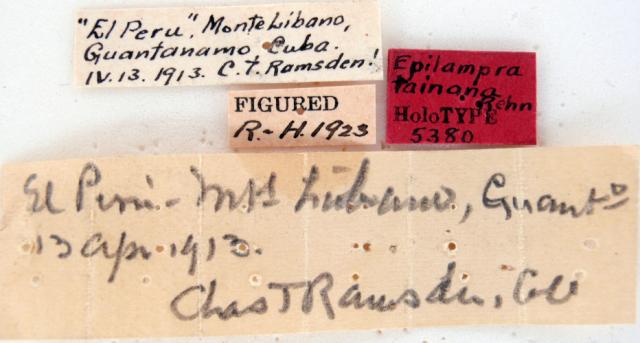 "El Peru", Monte Libano,
Guantanamo Cuba.
IV. 13. 1913. C. T. Ramsden!
FIGURED
R.-H. 1923
Epilampra
tainana
Rehn
HoloTYPE
5380
El Peru - Mte Libano, Guanto
13 Apr 1913.
Chas T Ramsden, Col